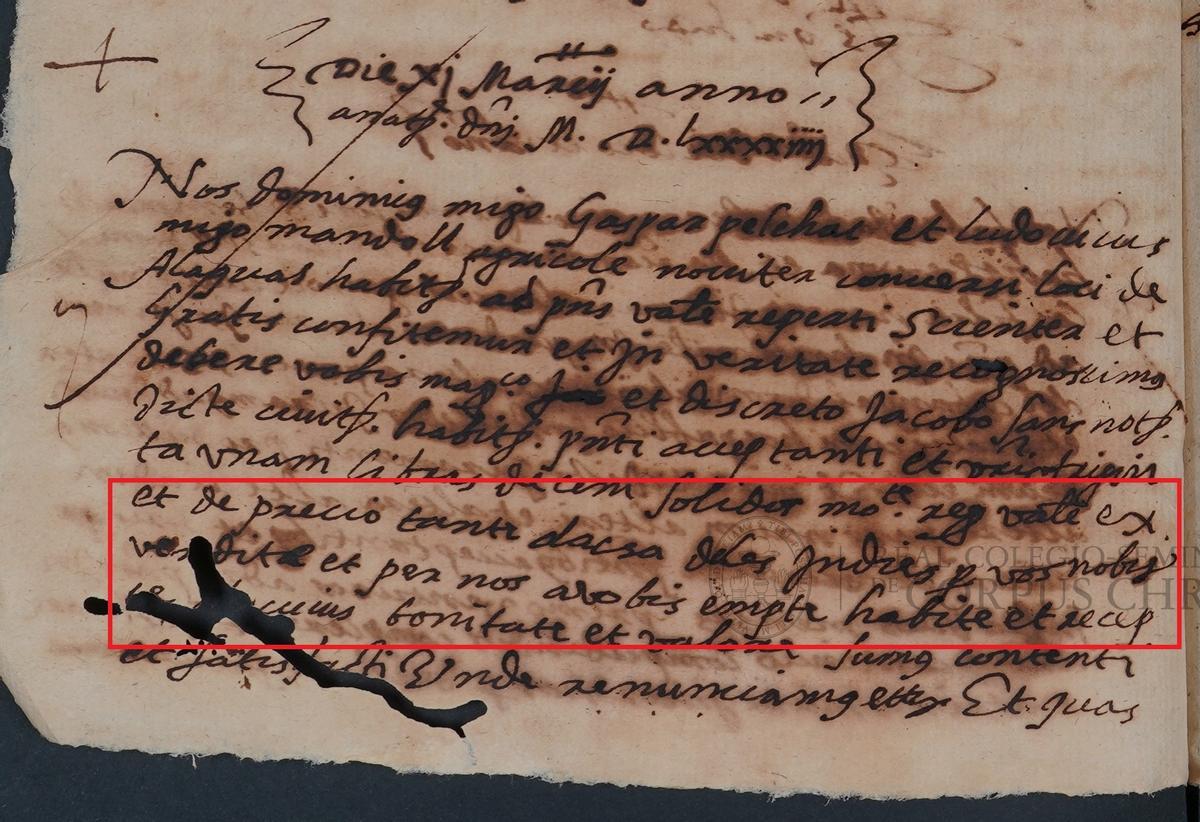 Die xj Marcij anno
anat. dnj M. D. lxxxxiiij
Nos dominicus migo Gaspar pelchac et ludovicus
migo mandoll agricole noviter conversi loci de
Alaquas habit. ad pns valē reperti Scienter et
Gratis confitemur et Jn veritate recognoscimus
debere vobis magco et discreto Jacobo Sans not.
dicte civit. habit. pnti acceptanti et
ta vnam libras decem solidos mo.te reg valē ex
et de precio tanti dacsa deles Jndies p vos nobis
vendite et per nos avobis empte habite et recep
cuius bonitate et valore sumus contenti
et Jnde renunciamus Et quas
REAL COLEGIO-SEMIN
DE CORPUS CHR